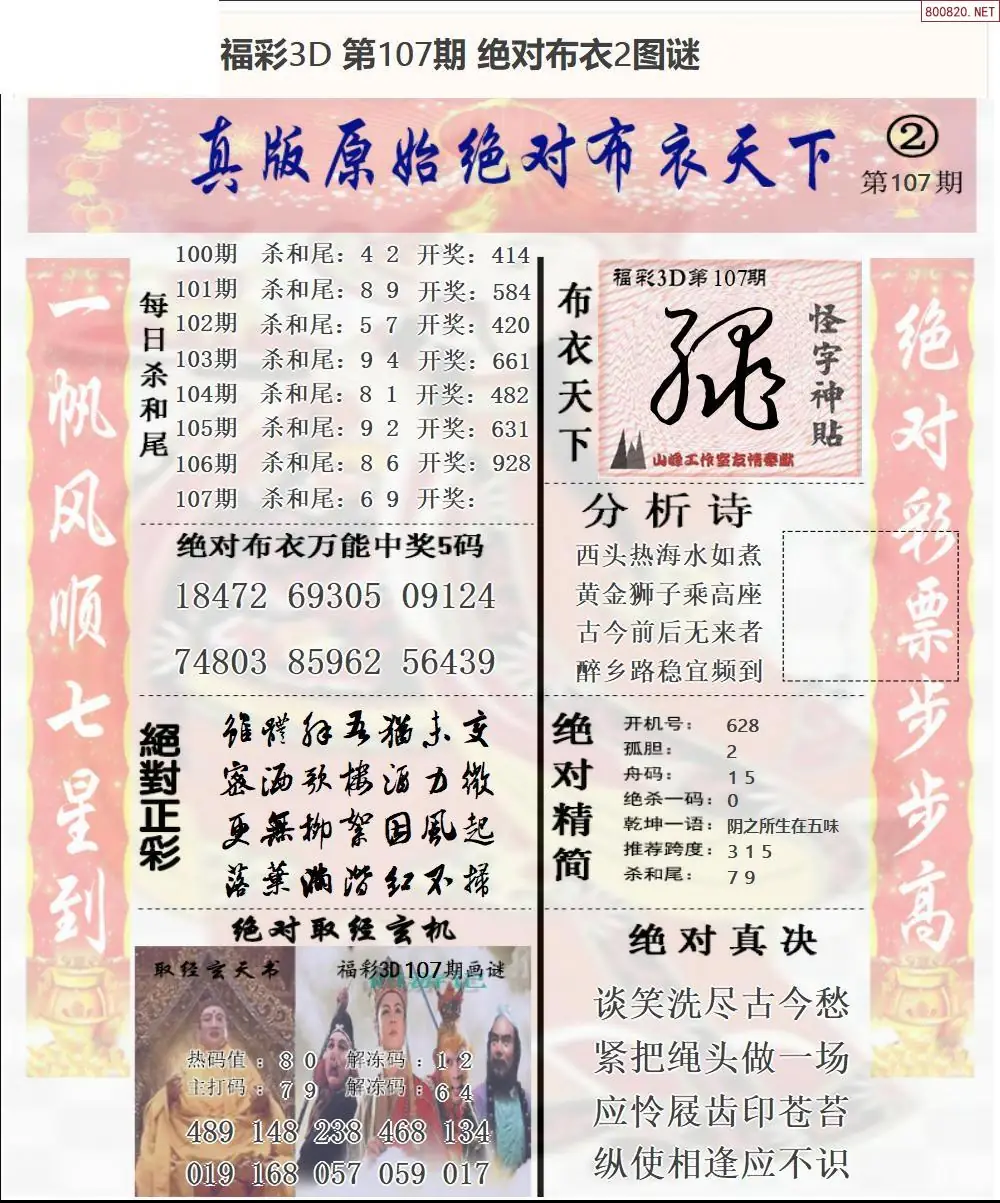 800820.NET
福彩3D 第107期 绝对布衣2图谜
真版原始绝对布衣天下
②
第107期
一帆风顺七星到
每日杀和尾
100期 杀和尾：4 2 开奖：414
101期 杀和尾：8 9 开奖：584
102期 杀和尾：5 7 开奖：420
103期 杀和尾：9 4 开奖：661
104期 杀和尾：8 1 开奖：482
105期 杀和尾：9 2 开奖：631
106期 杀和尾：8 6 开奖：928
107期 杀和尾：6 9 开奖：
绝对布衣万能中奖5码
18472 69305 09124
74803 85962 56439
絕對正彩
雖體解吾猶未交
密洒歌樓酒力微
更無柳絮因風起
落葉滿階紅不掃
绝对取经玄机
取经玄天书
福彩3D107期画谜
热码值：8 0 解冻码：1 2
主打码：7 9 解冻码：6 4
489 148 238 468 134
019 168 057 059 017
布衣天下
福彩3D第107期
怪字神貼
山峰工作室友情奉献
分析诗
西头热海水如煮
黄金狮子乘高座
古今前后无来者
醉乡路稳宜频到
绝对精简
开机号：628
孤胆：2
舟码：1 5
绝杀一码：0
乾坤一语：阴之所生在五味
推荐跨度：3 1 5
杀和尾：7 9
绝对真决
谈笑洗尽古今愁
紧把绳头做一场
应怜屐齿印苍苔
纵使相逢应不识
绝对彩票步步高